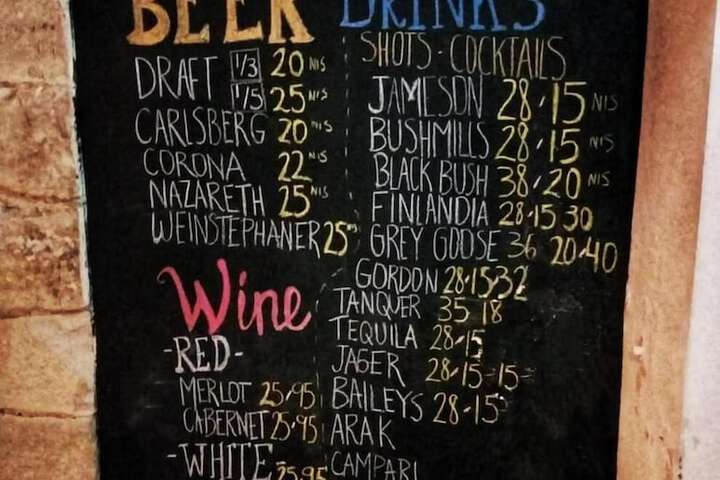 BEER
DRAFT 1/3 20 NIS
1/5 25 NIS
CARLSBERG 20 NIS
CORONA 22 NIS
NAZARETH 25 NIS
WEINSTEPHANER 25 NIS
Wine
-RED-
MERLOT 25/95
CABERNET 25/95
-WHITE
25/95
DRINKS
SHOTS - COCKTAILS
JAMESON 28/15 NIS
BUSHMILLS 28/15 NIS
BLACK BUSH 38/20 NIS
FINLANDIA 28/15 30
GREY GOOSE 36 20-40
GORDON 28-15-32
TANQUER 35 18
TEQUILA 28-15
JAGER 28-15-15
BAILEYS 28-15
ARAK
CAMPARI